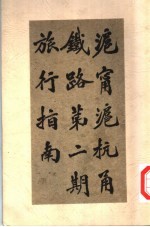 滬甯滬杭甬
鐵路第二期
旅行指南